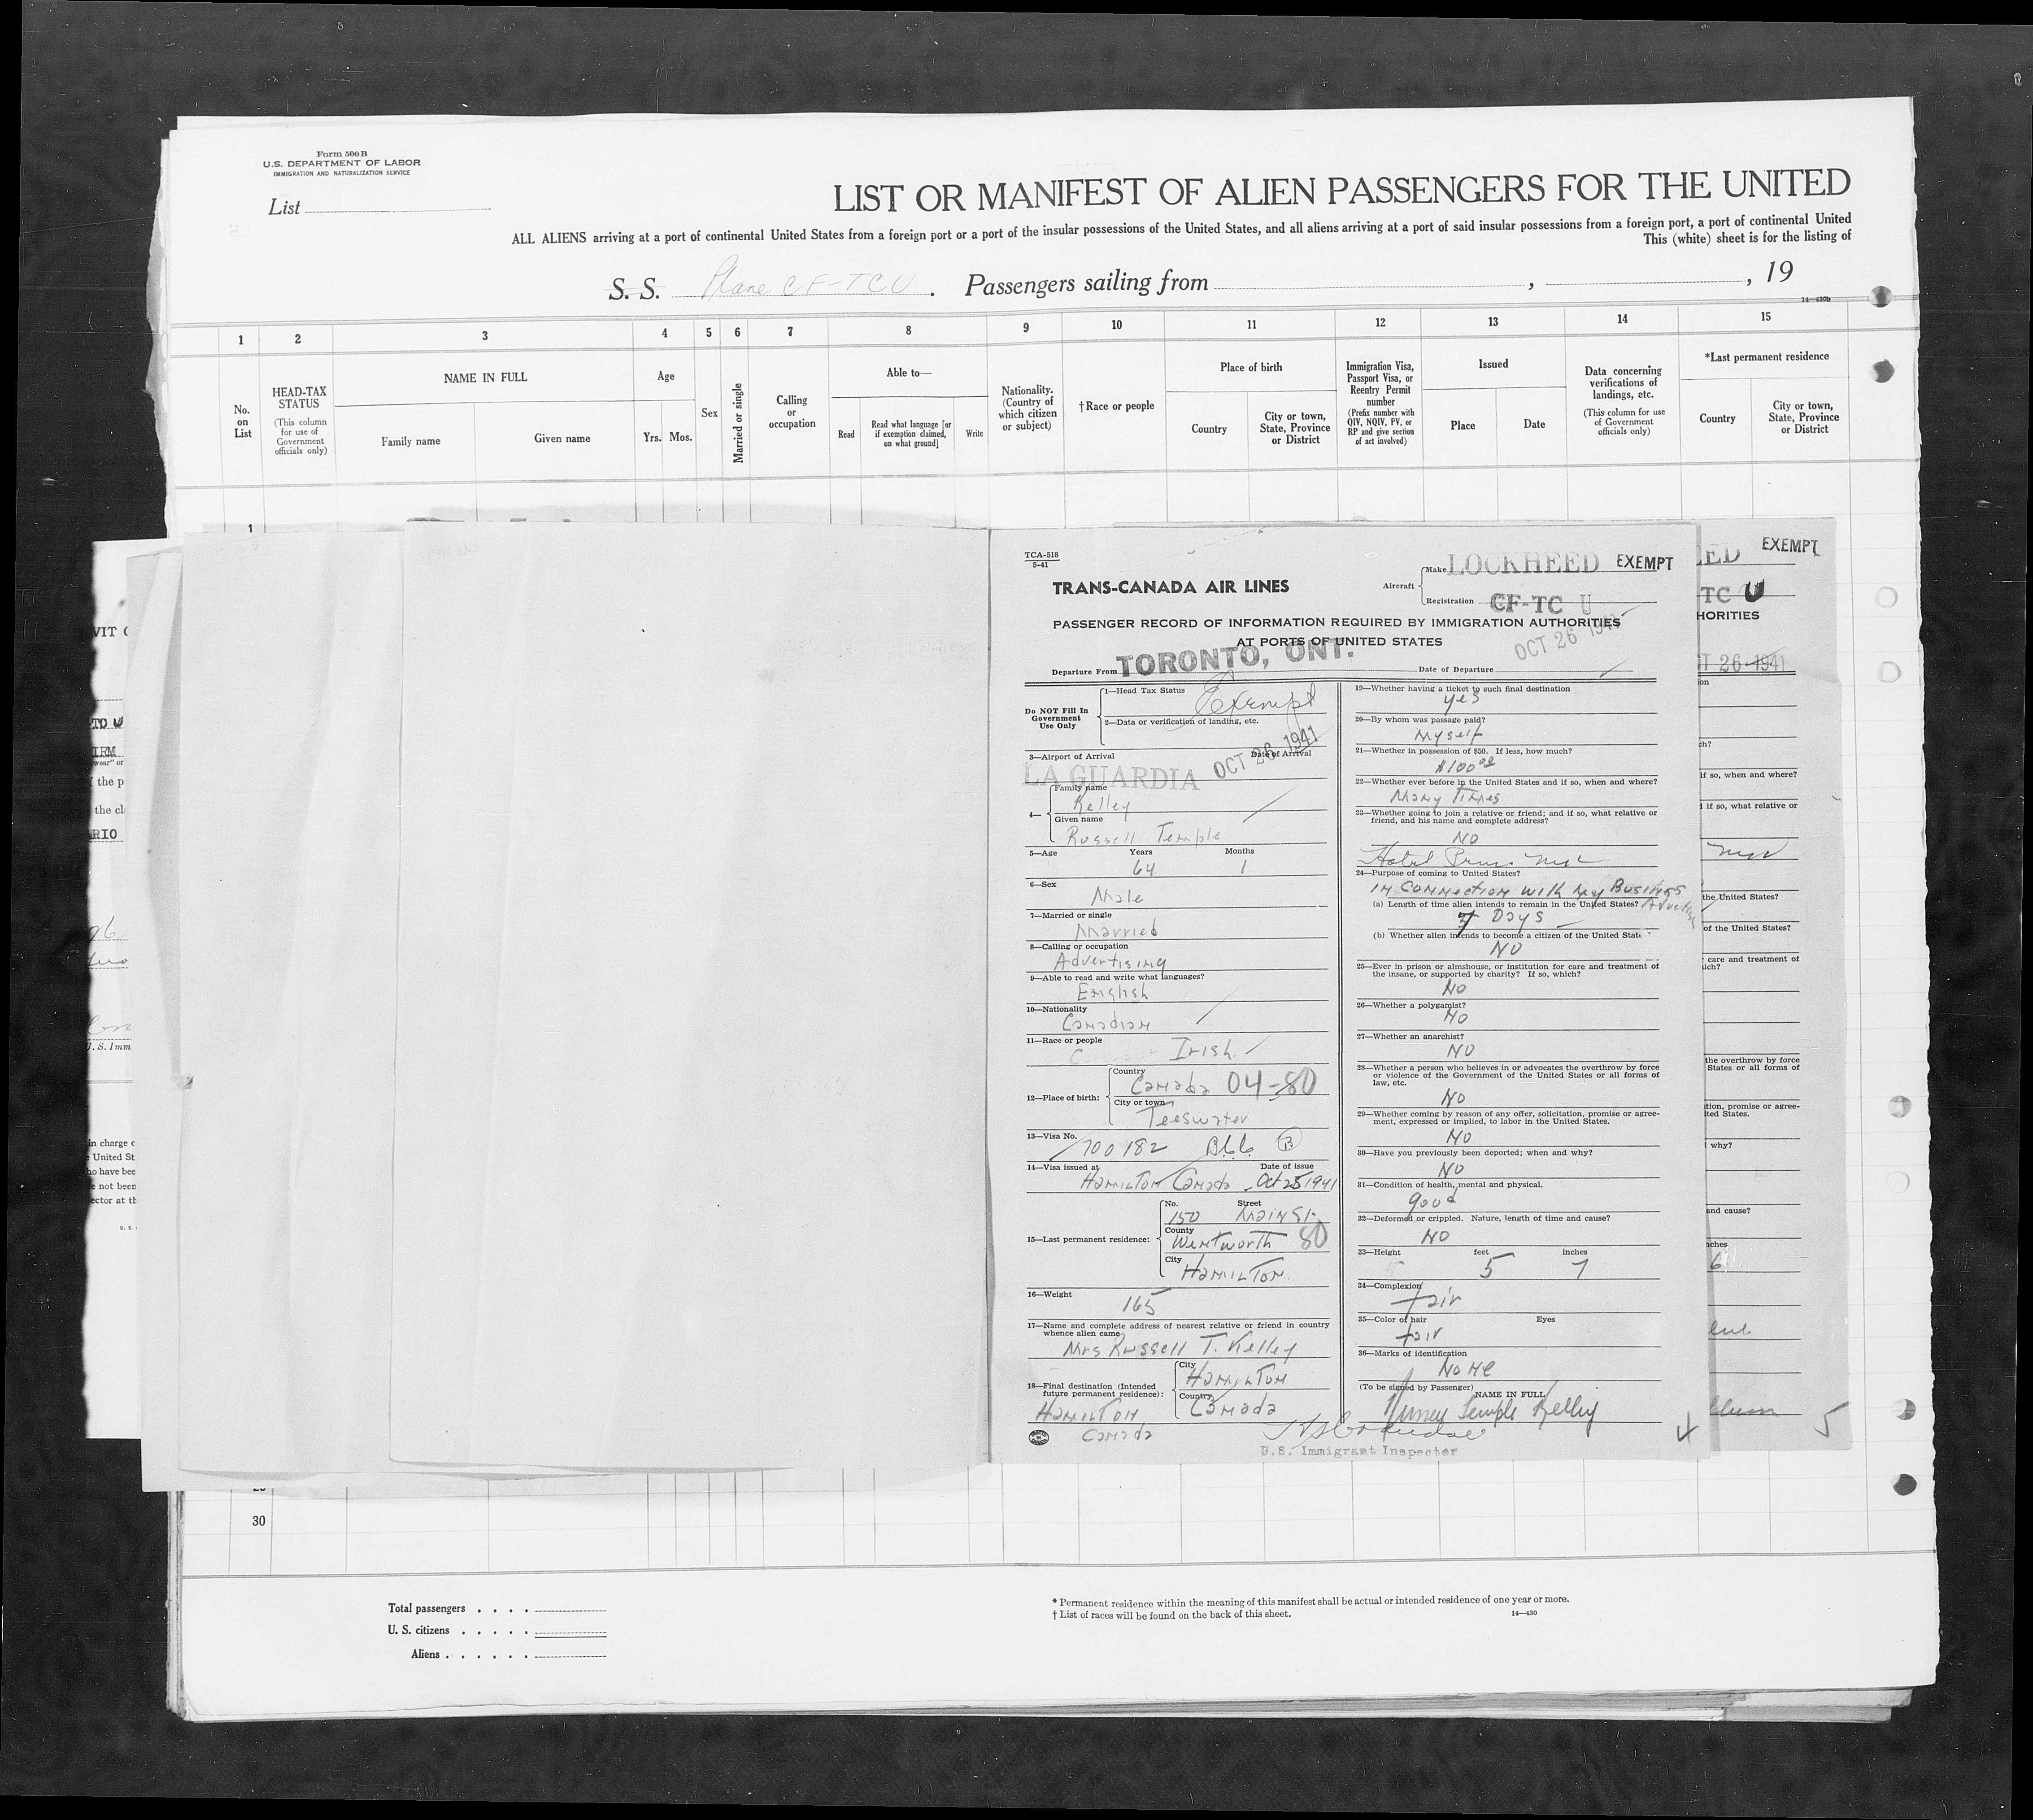 Form 500 B
U.S. DEPARTMENT OF LABOR
IMMIGRATION AND NATURALIZATION SERVICE
List
LIST OR MANIFEST OF ALIEN PASSENGERS FOR THE UNITED
ALL ALIENS arriving at a port of continental United States from a foreign port or a port of the insular possessions of the United States, and all aliens arriving at a port of said insular possessions from a foreign port, a port of continental United
This (white) sheet is for the listing of
S. S. Plane CF-TCU . Passengers sailing from , , 19
14—430b
1 2 3 4 5 6 7 8 9 10 11 12 13 14 15
No. on List
HEAD-TAX STATUS
(This column for use of Government officials only)
NAME IN FULL
Family name
Given name
Age
Yrs. Mos.
Sex
Married or single
Calling or occupation
Able to—
Read
Read what language [or if exemption claimed, on what ground]
Write
Nationality. (Country of which citizen or subject)
†Race or people
Place of birth
Country
City or town, State, Province or District
Immigration Visa, Passport Visa, or Reentry Permit number
(Prefix number with QIV, NQIV, PV, or RP and give section of act involved)
Issued
Place
Date
Data concerning verifications of landings, etc.
(This column for use of Government officials only)
*Last permanent residence
Country
City or town, State, Province or District
1
TCA-518
5-41
TRANS-CANADA AIR LINES
Aircraft
Make LOCKHEED EXEMPT
Registration CF-TC U
PASSENGER RECORD OF INFORMATION REQUIRED BY IMMIGRATION AUTHORITIES
AT PORTS OF UNITED STATES
OCT 26 1941
Departure From TORONTO, ONT. Date of Departure
Do NOT Fill In Government Use Only
1—Head Tax Status Exempt
2—Data or verification of landing, etc.
3—Airport of Arrival Date of Arrival
LA GUARDIA OCT 26 1941
4—
Family name
Kelley
Given name
Russell Temple
5—Age Years Months
64 1
6—Sex
Male
7—Married or single
Married
8—Calling or occupation
Advertising
9—Able to read and write what languages?
English
10—Nationality
Canadian
11—Race or people
Irish.
12—Place of birth:
Country
Canada 04-80
City or town
Teeswater
13—Visa No.
700182
14—Visa issued at Date of issue
Hamilton Canada Oct 25 1941
15—Last permanent residence:
No. Street
150 Main St.
County
Wentworth 80
City
Hamilton
16—Weight
165
17—Name and complete address of nearest relative or friend in country whence alien came
Mrs Russell T. Kelley
18—Final destination (Intended future permanent residence):
City
Hamilton
Country
Canada
Hamilton
Canada
19—Whether having a ticket to such final destination
yes
20—By whom was passage paid?
Myself
21—Whether in possession of $50. If less, how much?
$100.00
22—Whether ever before in the United States and if so, when and where?
Many Times
23—Whether going to join a relative or friend; and if so, what relative or friend, and his name and complete address?
NO
Hotel
24—Purpose of coming to United States?
in connection with my Business
(a) Length of time alien intends to remain in the United States?
Days
(b) Whether alien intends to become a citizen of the United State
NO
25—Ever in prison or almshouse, or institution for care and treatment of the insane, or supported by charity? If so, which?
NO
26—Whether a polygamist?
NO
27—Whether an anarchist?
NO
28—Whether a person who believes in or advocates the overthrow by force or violence of the Government of the United States or all forms of law, etc.
NO
29—Whether coming by reason of any offer, solicitation, promise or agreement, expressed or implied, to labor in the United States.
NO
30—Have you previously been deported; when and why?
NO
31—Condition of health, mental and physical.
good
32—Deformed or crippled. Nature, length of time and cause?
NO
33—Height feet inches
5 7
34—Complexion
fair
35—Color of hair Eyes
fair
36—Marks of identification
NONE
(To be signed by Passenger)
NAME IN FULL
Temple Kelley
U.S. Immigrant Inspector
4
EXEMPT
TC U
HORITIES
26 1941
if so, when and where?
if so, what relative or
the United States?
of the United States?
care and treatment of
the overthrow by force
States or all forms of
tion, promise or agree-
ited States.
why?
and cause?
ches
6
5
VIT
the p
the cl
RIO
U.S. Imm
in charge
United St
ho have bee
not been
ector at th
30
Total passengers
U. S. citizens
Aliens
* Permanent residence within the meaning of this manifest shall be actual or intended residence of one year or more.
† List of races will be found on the back of this sheet.
14—430